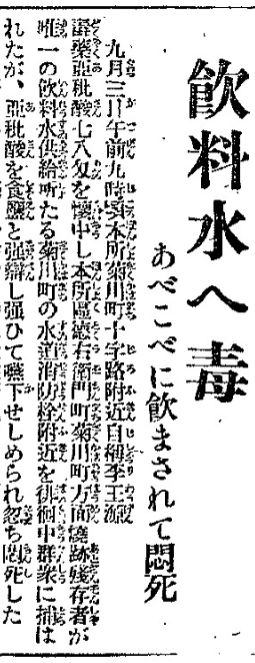 飲料水へ毒
あべこべに飲まされて悶死
九月三日午前九時頃本所菊川町十字路附近自称李王源
毒薬亜砒酸七八匁を懐中し本所区徳右衛門町菊川町方面焼跡残存者が
唯一の飲料水供給所たる菊川町の水道消防栓附近を徘徊中群衆に捕は
れたが、亜砒酸を食塩と強弁し強ひて嚥下せしめられ忽ち悶死した